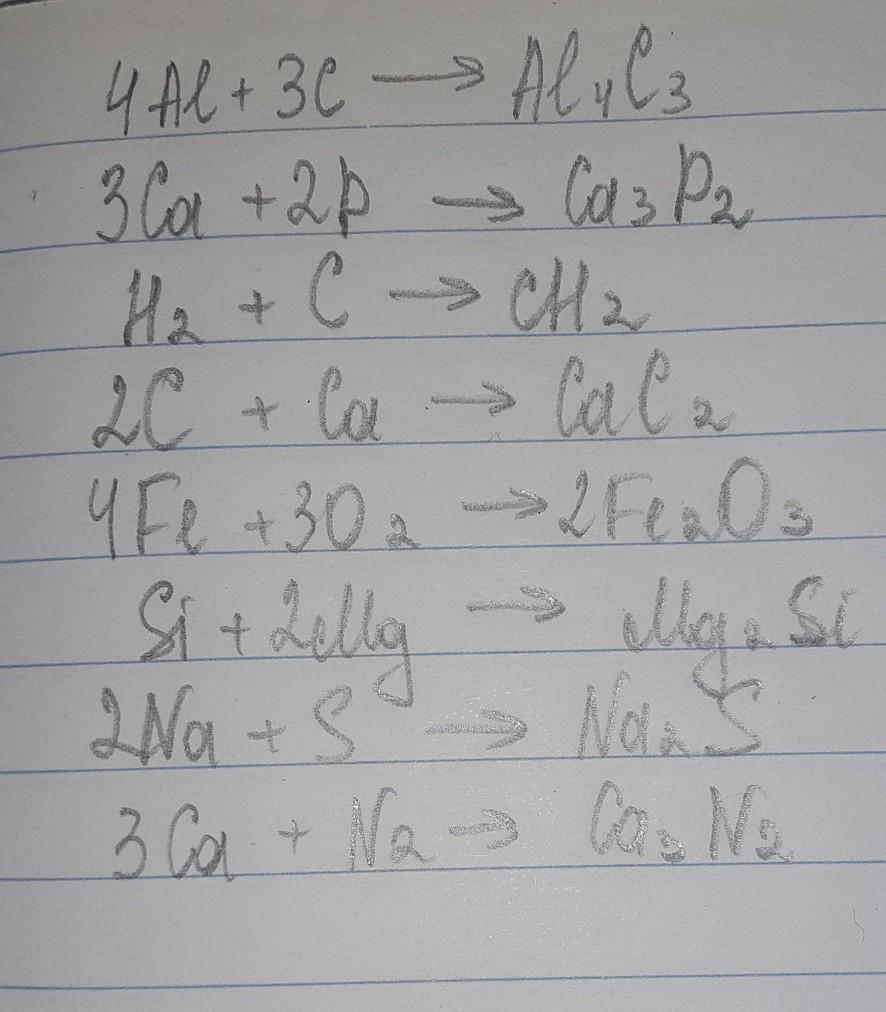 4Al + 3C → Al₄C₃
3Ca + 2P → Ca₃P₂
H₂ + C → CH₂
2C + Ca → CaC₂
4Fe + 3O₂ → 2Fe₂O₃
Si + 2Mg → Mg₂Si
2Na + S → Na₂S
3Ca + N₂ → Ca₃N₂